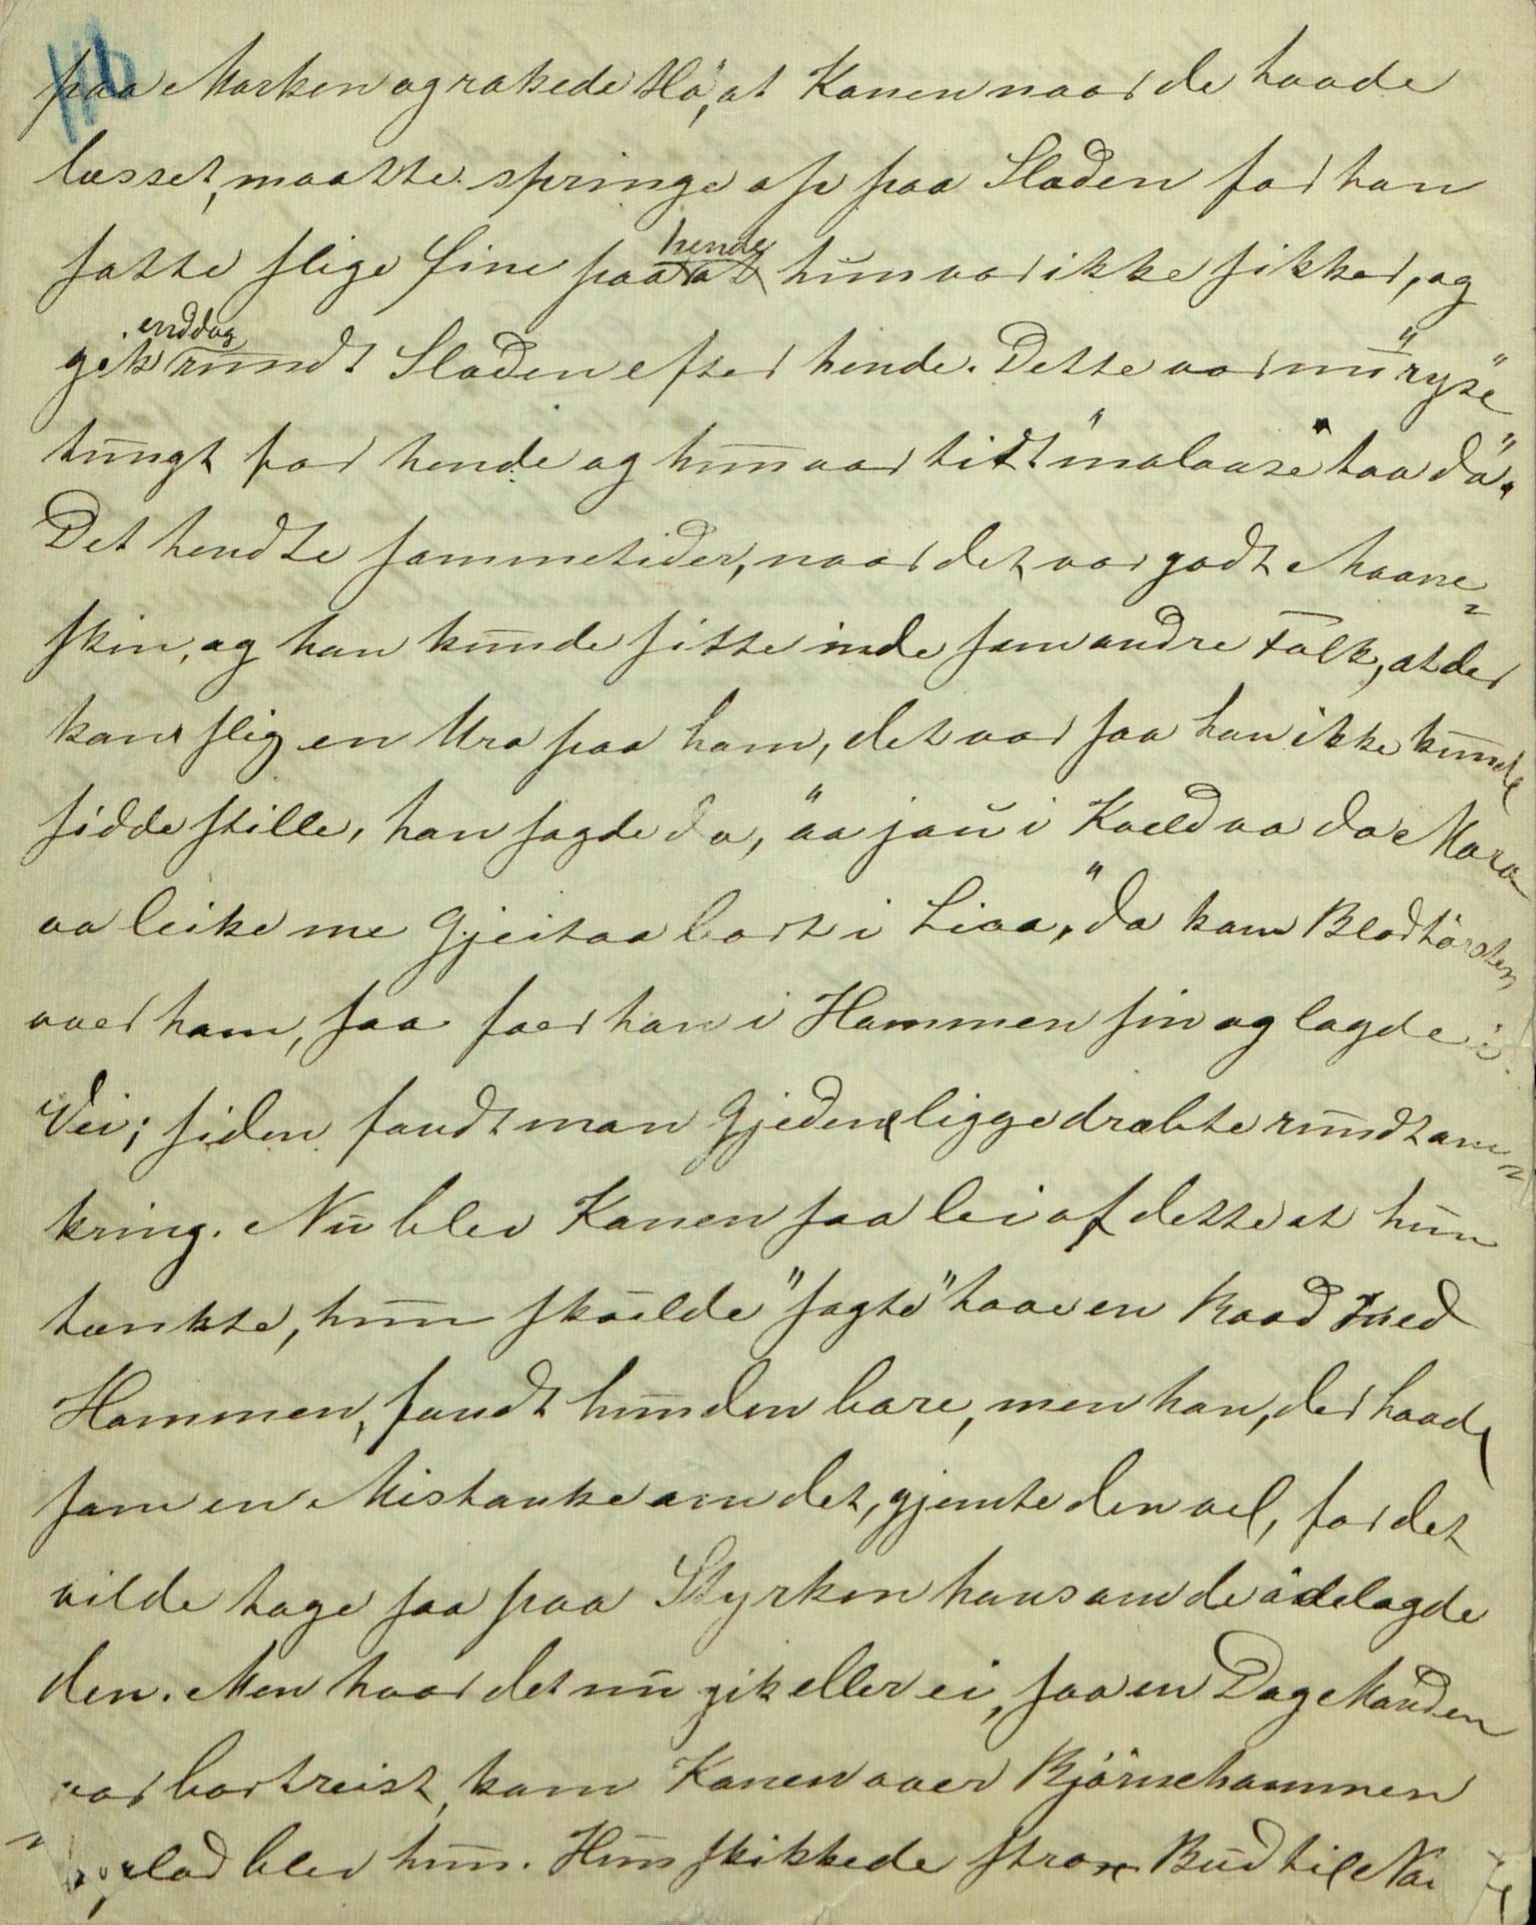 116
paa Marken og rakede Hö, at Konen naar de havde
læsset, maatte springe op paa Sladen for han
satte slige Sine paa hende at hun var ikke sikker, og
gik enddog rundt Sladen efter hende. Dette var nu "ryse"
tungt for hende og hun var tidt "malaase" taa dö".
Det hendte sommetider, naar det var godt Maane=
skin, og han kunde sitte inde som andre Folk, at der
kom slig en Ura paa ham, det var saa han ikke kunde
sidde stille, han sagde da, "aa jau i Kveld va da Mora
aa leike me Gjeitaa bort i Liaa," da kom Blodtörsten
over ham, saa foer han i Hammen sin og lagde i
Vei; siden fandt man Gjedene ligge dræbte rundtom=
kring. Nu blev Konen saa lei af dette at hun
tænkte, hun skulde "sagte" taae en Raad med
Hammen, fandt hun den bare, men han, der havde
som en Mistanke om det, gjemte den vel, for det
vilde tage saa paa Styrken hans om de ödelagde
den. Men hvor det nu gik eller ei, saa en Dag Manden
var bortreist, kom Konen over Björnehammen
og glad blev hun. Hun skikkede strax Bud til Na=